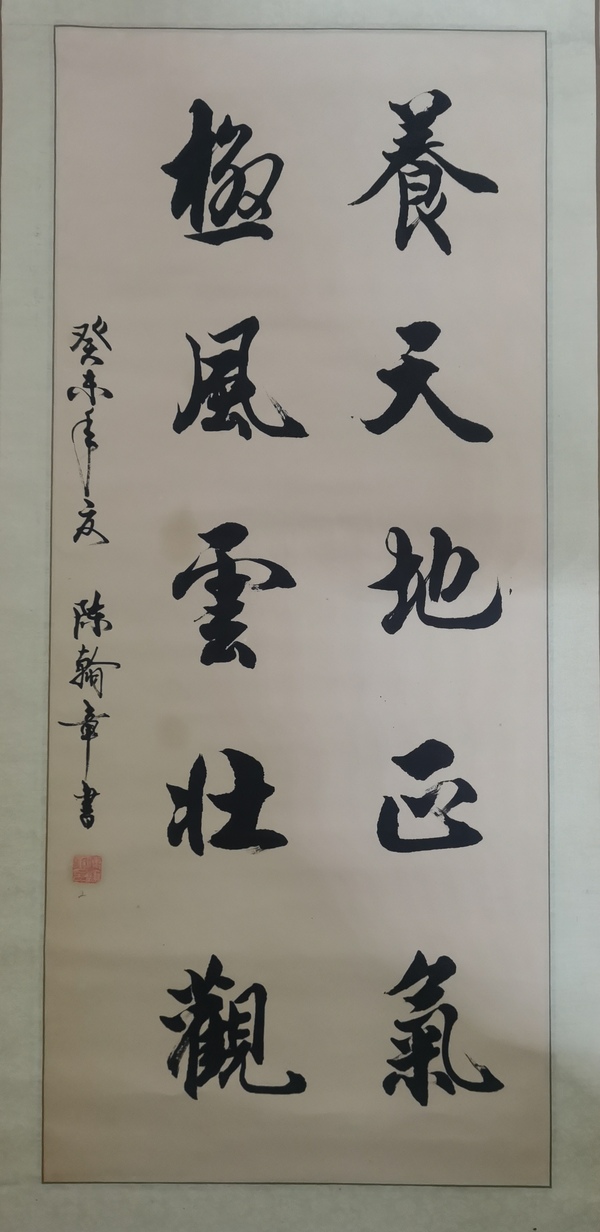 養天地正氣
極風雲壯觀
癸未年夏 陈翰章書